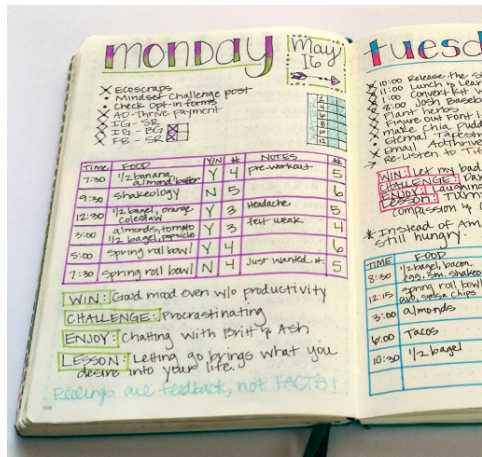 monday
May
16
Ecoscraps
Mindset Challenge post
Check opt-in forms
AD-Thrive payment
IG - SR
IG - BG
FB - SR
TIME FOOD Y/N # NOTES #
7:30 1/2 banana, almond butter Y 4 Pre-workout 5
9:30 shakeology N 5 6
12:30 1/2 bagel, orange coleslaw Y 3 Headache 5
3:00 almonds, tomato 1/2 bagel, popsicle Y 3 felt weak 4
5:00 spring roll bowl Y 4 6
7:30 spring roll bowl N 4 Just wanted it 5
WIN: Good mood even w/o productivity
CHALLENGE: Procrastinating
ENJOY: Chatting with Britt & Ash
LESSON: Letting go brings what you
desire into your life.
Feelings are feedback, not FACTS!
tuesd
10:00 Release the S
11:00 Lunch & Lear
1:00 Convert Kit W
8:00 Josh Baseb
Plant herbs
Figure out Font
make Chia Pudd
Eternal Tapest
Email AdThrive
Re-Listen to
WIN: Let my bad
CHALLENGE:
ENJOY: Laughing
LESSON:
compassion &
* Instead of Am
still hungry.
TIME FOOD
8:30 1/2 bagel, bacon,
egg, sm. shakeo
12:15 spring roll bowl
avo, salsa chips
3:00 almonds
6:00 Tacos
10:30 1/2 bagel